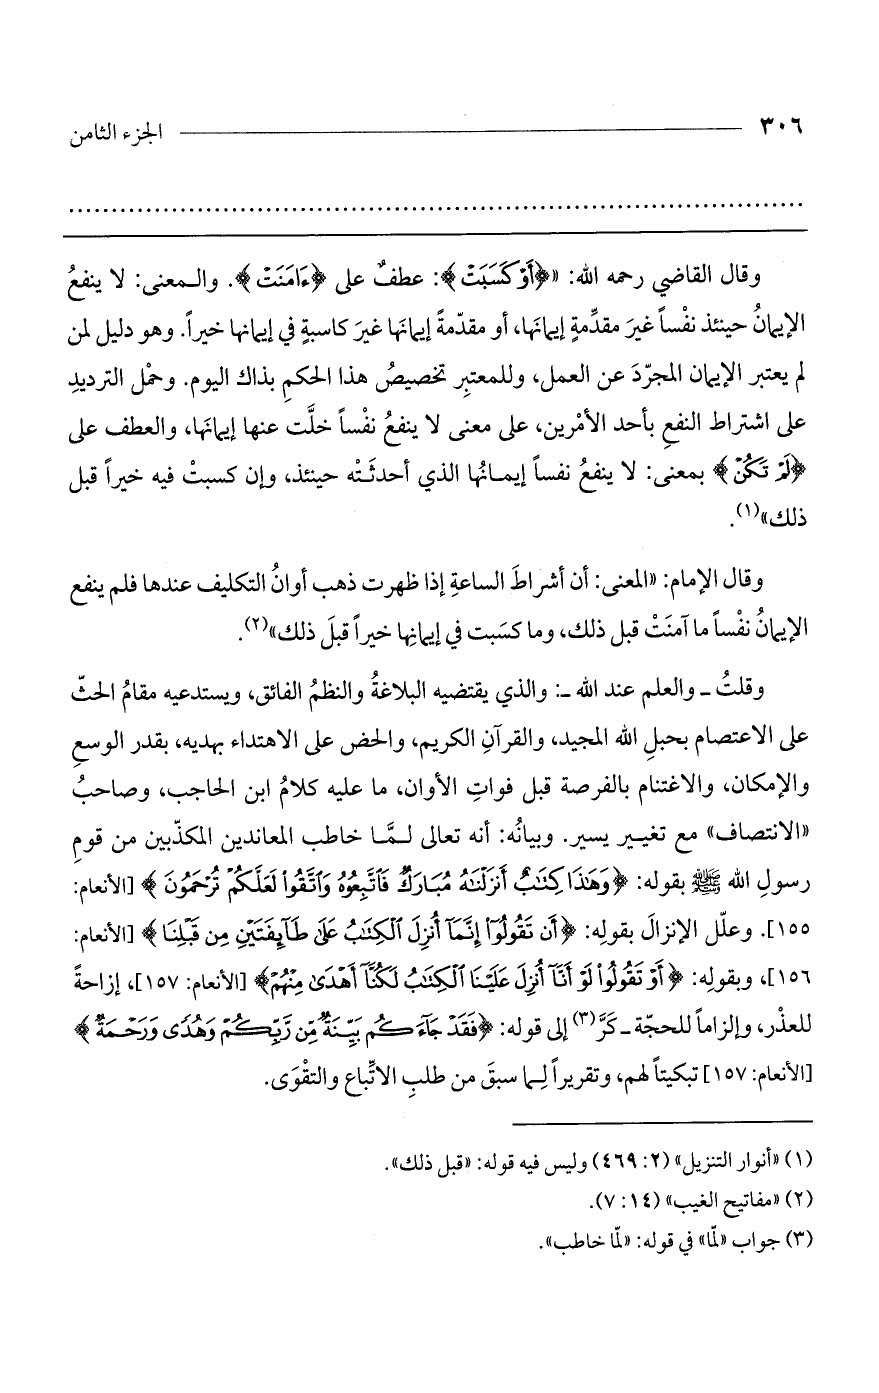 ٣٠٦ الجزء الثامن
وقال القاضي رحمه الله: «﴿أَوْ كَسَبَتْ﴾: عطفٌ على ﴿ءَامَنَتْ﴾. والـمعنى: لا ينفعُ
الإيمانُ حينئذ نفْساً غيرَ مقدِّمةٍ إيمانَها، أو مقدّمةً إيمانَها غيرَ كاسبةٍ في إيمانها خيراً. وهو دليل لمن
لم يعتبر الإيمان المجرّدَ عن العمل، وللمعتبِرِ تخصيصُ هذا الحكمِ بذاك اليوم. وحمْل الترديدِ
على اشتراط النفعِ بأحد الأمْرين، على معنى لا ينفعُ نفْساً خلَّت عنها إيمانَها، والعطف على
﴿لَمْ تَكُنْ﴾ بمعنى: لا ينفعُ نفساً إيمـانُها الذي أحدثَـتْه حينئذ، وإن كسبتْ فيه خيراً قبل
ذلك»(١).
وقال الإمام: «المعنى: أن أشراطَ الساعةِ إذا ظهرت ذهب أوانُ التكليف عندها فلم ينفع
الإيمانُ نفْساً ما آمنَتْ قبل ذلك، وما كسَبت في إيمانِها خيراً قبلَ ذلك»(٢).
وقلتُ ـ والعلم عند الله ـ: والذي يقتضيه البلاغةُ والنظمُ الفائق، ويستدعيه مقامُ الحثّ
على الاعتصام بحبلِ الله المجيد، والقرآنِ الكريم، والحض على الاهتداء بهديه، بقدر الوسعِ
والإمكان، والاغتنام بالفرصة قبل فواتِ الأوان، ما عليه كلامُ ابن الحاجب، وصاحبُ
«الانتصاف» مع تغيـير يسير. وبيانُه: أنه تعالى لـمَّـا خاطب المعاندين المكذّبين من قومِ
رسولِ الله ﷺ بقوله: ﴿وَهَٰذَا كِتَٰبٌ أَنزَلْنَٰهُ مُبَارَكٌ فَٱتَّبِعُوهُ وَٱتَّقُوا۟ لَعَلَّكُمْ تُرْحَمُونَ﴾ [الأنعام:
١٥٥]. وعلّل الإنزالَ بقولِه: ﴿أَن تَقُولُوٓا۟ إِنَّمَآ أُنزِلَ ٱلْكِتَٰبُ عَلَىٰ طَآئِفَتَيْنِ مِن قَبْلِنَا﴾ [الأنعام:
١٥٦]، وبقولِه: ﴿أَوْ تَقُولُوا۟ لَوْ أَنَّآ أُنزِلَ عَلَيْنَا ٱلْكِتَٰبُ لَكُنَّآ أَهْدَىٰ مِنْهُمْ﴾ [الأنعام: ١٥٧]، إزاحةً
للعذْر، وإلزاماً للحجّة ـ كَرَّ(٣) إلى قوله: ﴿فَقَدْ جَآءَكُم بَيِّنَةٌ مِّن رَّبِّكُمْ وَهُدًى وَرَحْمَةٌ﴾
[الأنعام: ١٥٧] تبكيتاً لهم، وتقريراً لِـما سبقَ من طلبِ الاتِّباع والتقْوَى.
(١) «أنوار التنزيل» (٢: ٤٦٩) وليس فيه قوله: «قبل ذلك».
(٢) «مفاتيح الغيب» (١٤: ٧).
(٣) جواب «لمّا» في قوله: «لمّا خاطب».